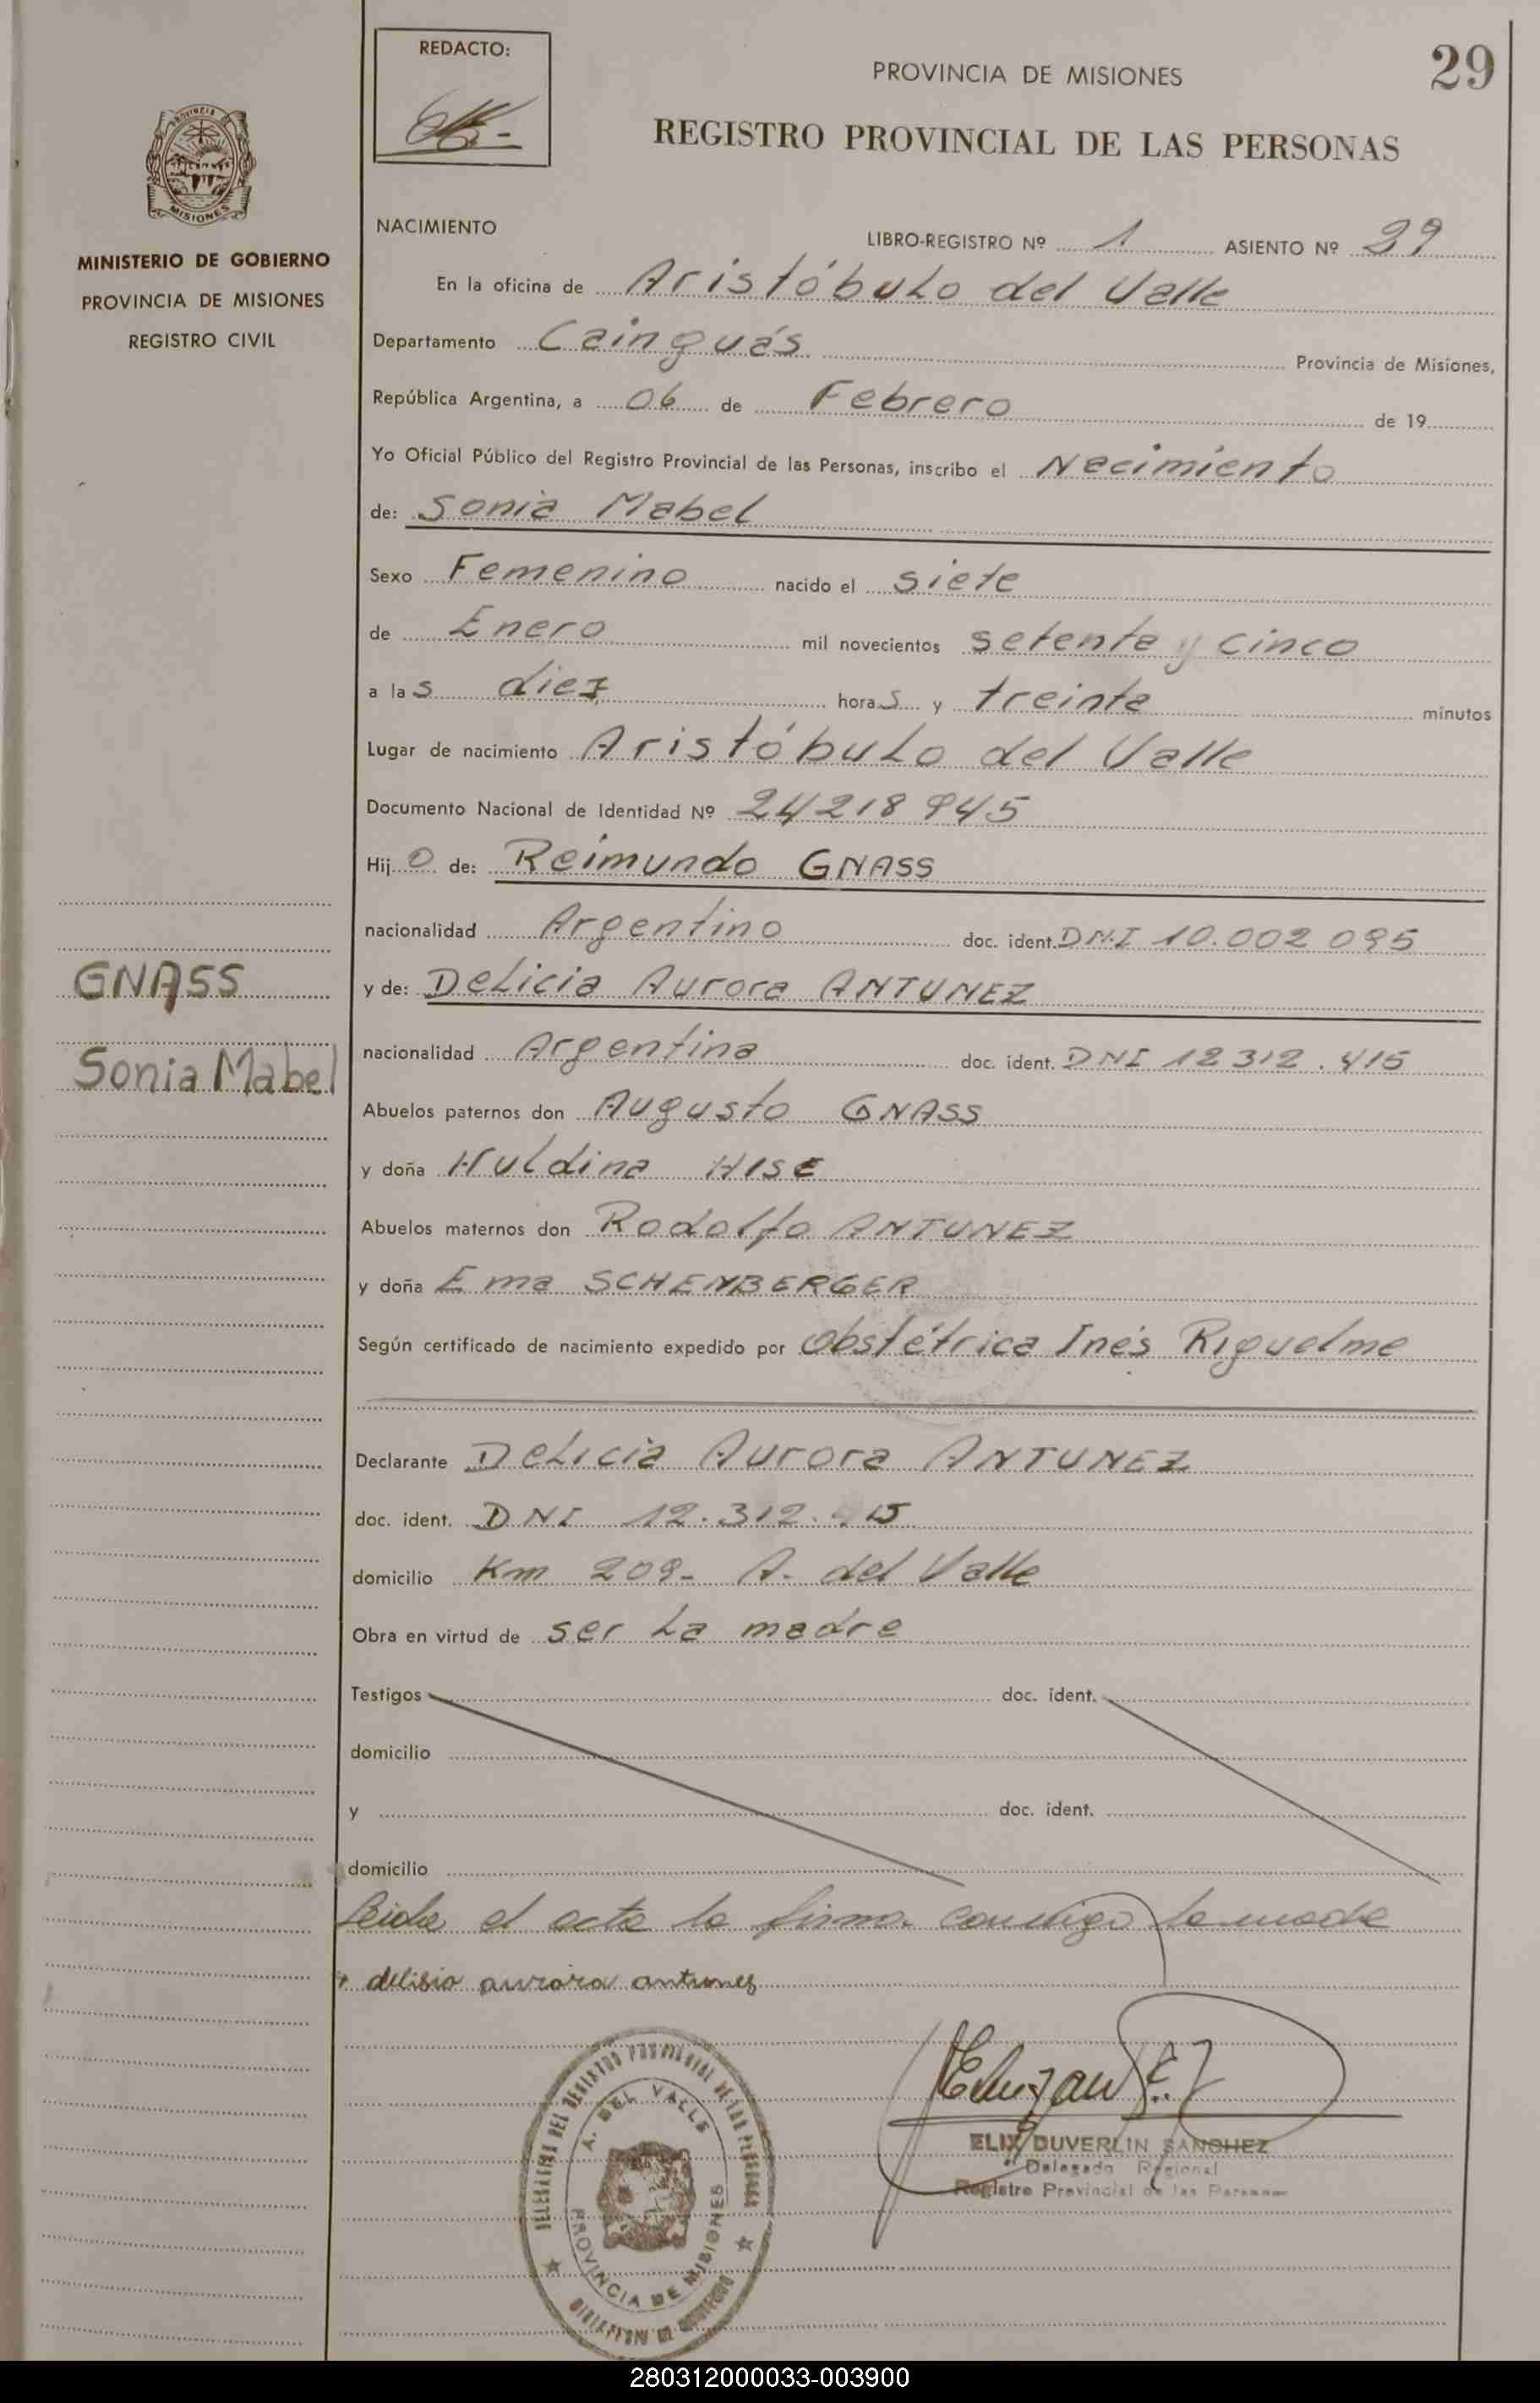 REDACTO:
PROVINCIA DE MISIONES
29
REGISTRO PROVINCIAL DE LAS PERSONAS
MISIONES
MINISTERIO DE GOBIERNO
PROVINCIA DE MISIONES
REGISTRO CIVIL
NACIMIENTO
LIBRO-REGISTRO Nº 1 ASIENTO Nº 29
En la oficina de Aristóbulo del Valle
Departamento Cainguás Provincia de Misiones,
República Argentina, a 06 de Febrero de 19
Yo Oficial Público del Registro Provincial de las Personas, inscribo el Nacimiento
de: Sonia Mabel
Sexo Femenino nacido el siete
de Enero mil novecientos setenta y cinco
a las diez horas y treinta minutos
Lugar de nacimiento Aristóbulo del Valle
Documento Nacional de Identidad Nº 24218945
Hijo de: Reimundo GNASS
nacionalidad Argentino doc. ident. DNI 10.002 095
y de: Delicia Aurora ANTUNEZ
GNASS
nacionalidad Argentina doc. ident. DNI 12 312.415
Sonia Mabel
Abuelos paternos don Augusto GNASS
y doña Huldina HISE
Abuelos maternos don Rodolfo ANTUNEZ
y doña Ema SCHENBERGER
Según certificado de nacimiento expedido por Obstétrica Inés Riquelme
Declarante Delicia Aurora ANTUNEZ
doc. ident. DNI 12.312.415
domicilio Km 209- A. del Valle
Obra en virtud de ser la madre
Testigos doc. ident.
domicilio
y doc. ident.
domicilio
Leida el acta la firma conmigo la madre
delisia aurora antunes
DEL REGISTRO PROVINCIAL DE LAS PERSONAS
A. DEL VALLE
PROVINCIA DE MISIONES
ELIX DUVERLIN SANCHEZ
Delegado Regional
Registro Provincial de las Personas
280312000033-003900